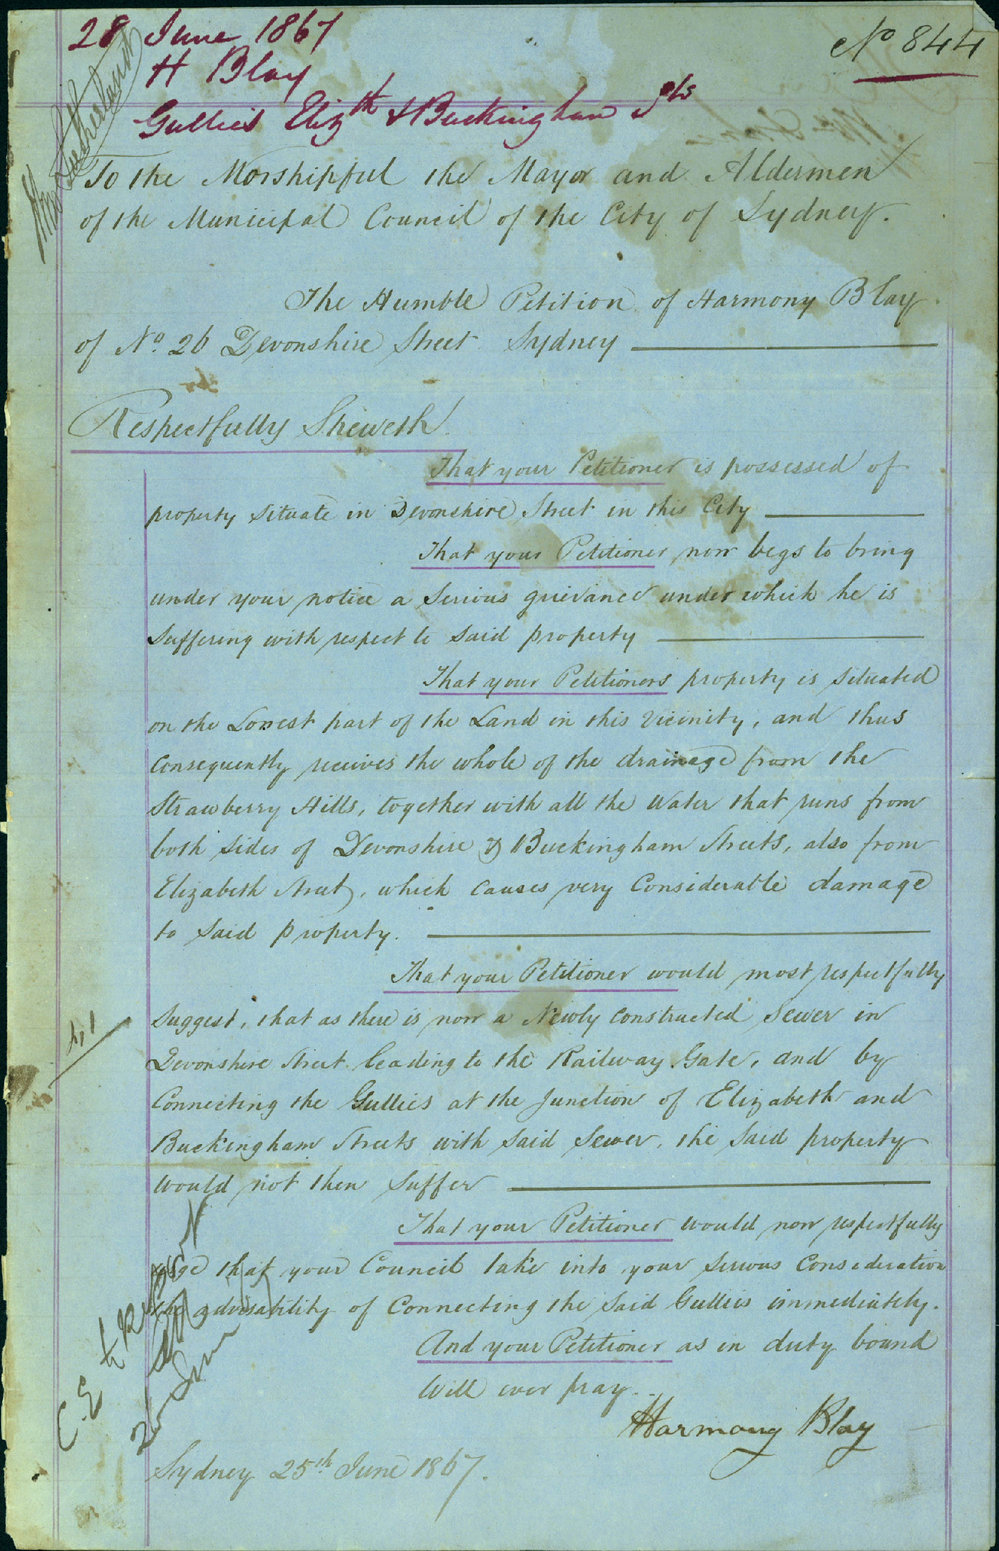 28 June 1867
H Blay
Gullies Elizth & Buckingham Sts
No 844
Mr Sutherland
To the Worshipful the Mayor and Aldermen
of the Municipal Council of the City of Sydney.
The Humble Petition of Harmony Blay
of No. 26 Devonshire Street Sydney
Respectfully Sheweth
That your Petitioner is possessed of
property situate in Devonshire Street in this City
That your Petitioner now begs to bring
under your notice a serious grievance under which he is
suffering with respect to said property
That your Petitioners property is situated
on the Lowest part of the Land in this vicinity, and thus
consequently receives the whole of the drainage from the
Strawberry Hills, together with all the water that runs from
both sides of Devonshire & Buckingham Streets, also from
Elizabeth Street, which causes very considerable damage
to said property.
That your Petitioner would most respectfully
suggest, that as there is now a Newly constructed Sewer in
Devonshire Street leading to the Railway Gate, and by
Connecting the Gullies at the Junction of Elizabeth and
Buckingham Streets with said Sewer, the said property
would not then suffer
That your Petitioner would now respectfully
urge that your Council take into your serious consideration
the advisability of Connecting the said Gullies immediately.
And your Petitioner as in duty bound
Will ever pray.
Harmony Blay
C.E to report
Sydney 25th June 1867.